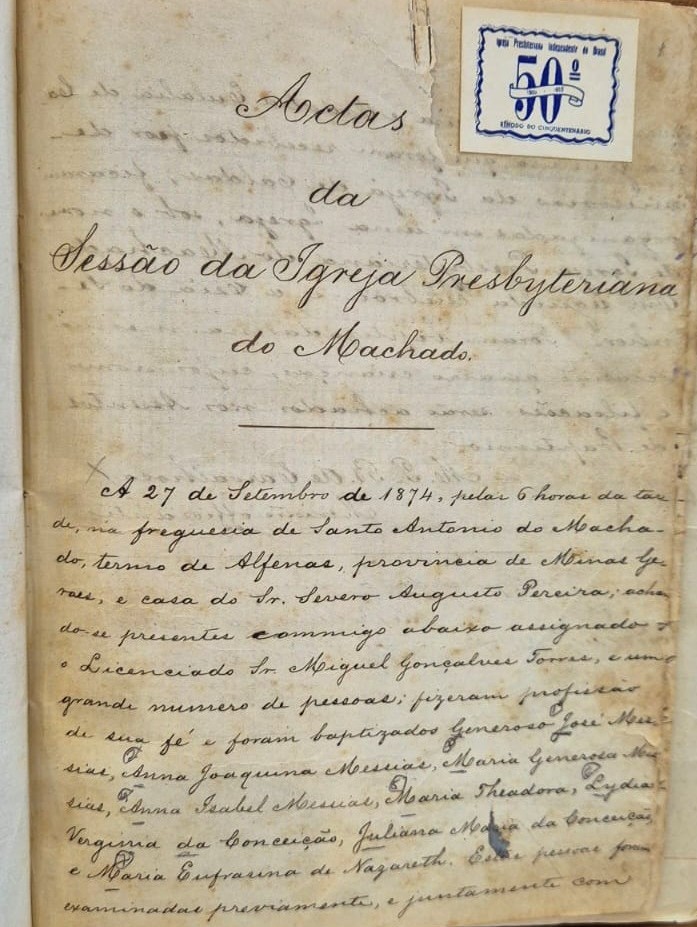 Igreja Presbiteriana Independente do Brasil
50º
PERÍODO DO CINQUENTENÁRIO
Actas
da
Sessão da Igreja Presbyteriana
do Machado.
A 27 de Setembro de 1874, pelas 6 horas da tar-
de, na freguesia de Santo Antonio do Macha-
do, termo de Alfenas, provincia de Minas Ge-
raes, e casa do Sr. Severo Augusto Pereira; achan
do-se presentes commigo abaixo assignado
o Licenciado Sr. Miguel Gonçalves Torres, e um
grande numero de pessoas; fizeram profissão
de sua fé e foram baptizados Generoso José Mes-
sias, Anna Joaquina Messias, Maria Generosa Mes
sias, Anna Isabel Messias, Maria Theodora, Lydia
Verginia da Conceição, Juliana Maria da Conceição,
e Maria Eufrasina de Nazareth. Estas pessoas foram
examinadas previamente, e juntamente com